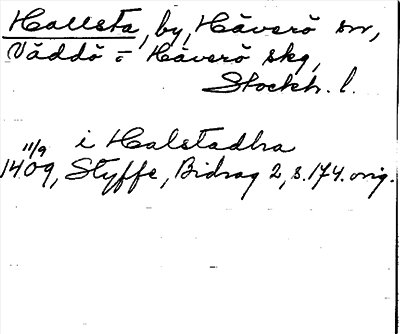 Hallsta, by, Häverö sn,
Väddö = Häverö skg,
Stockh. l.
i Halstadha
11/9
1409, Styffe, Bidrag 2, s. 174. orig.